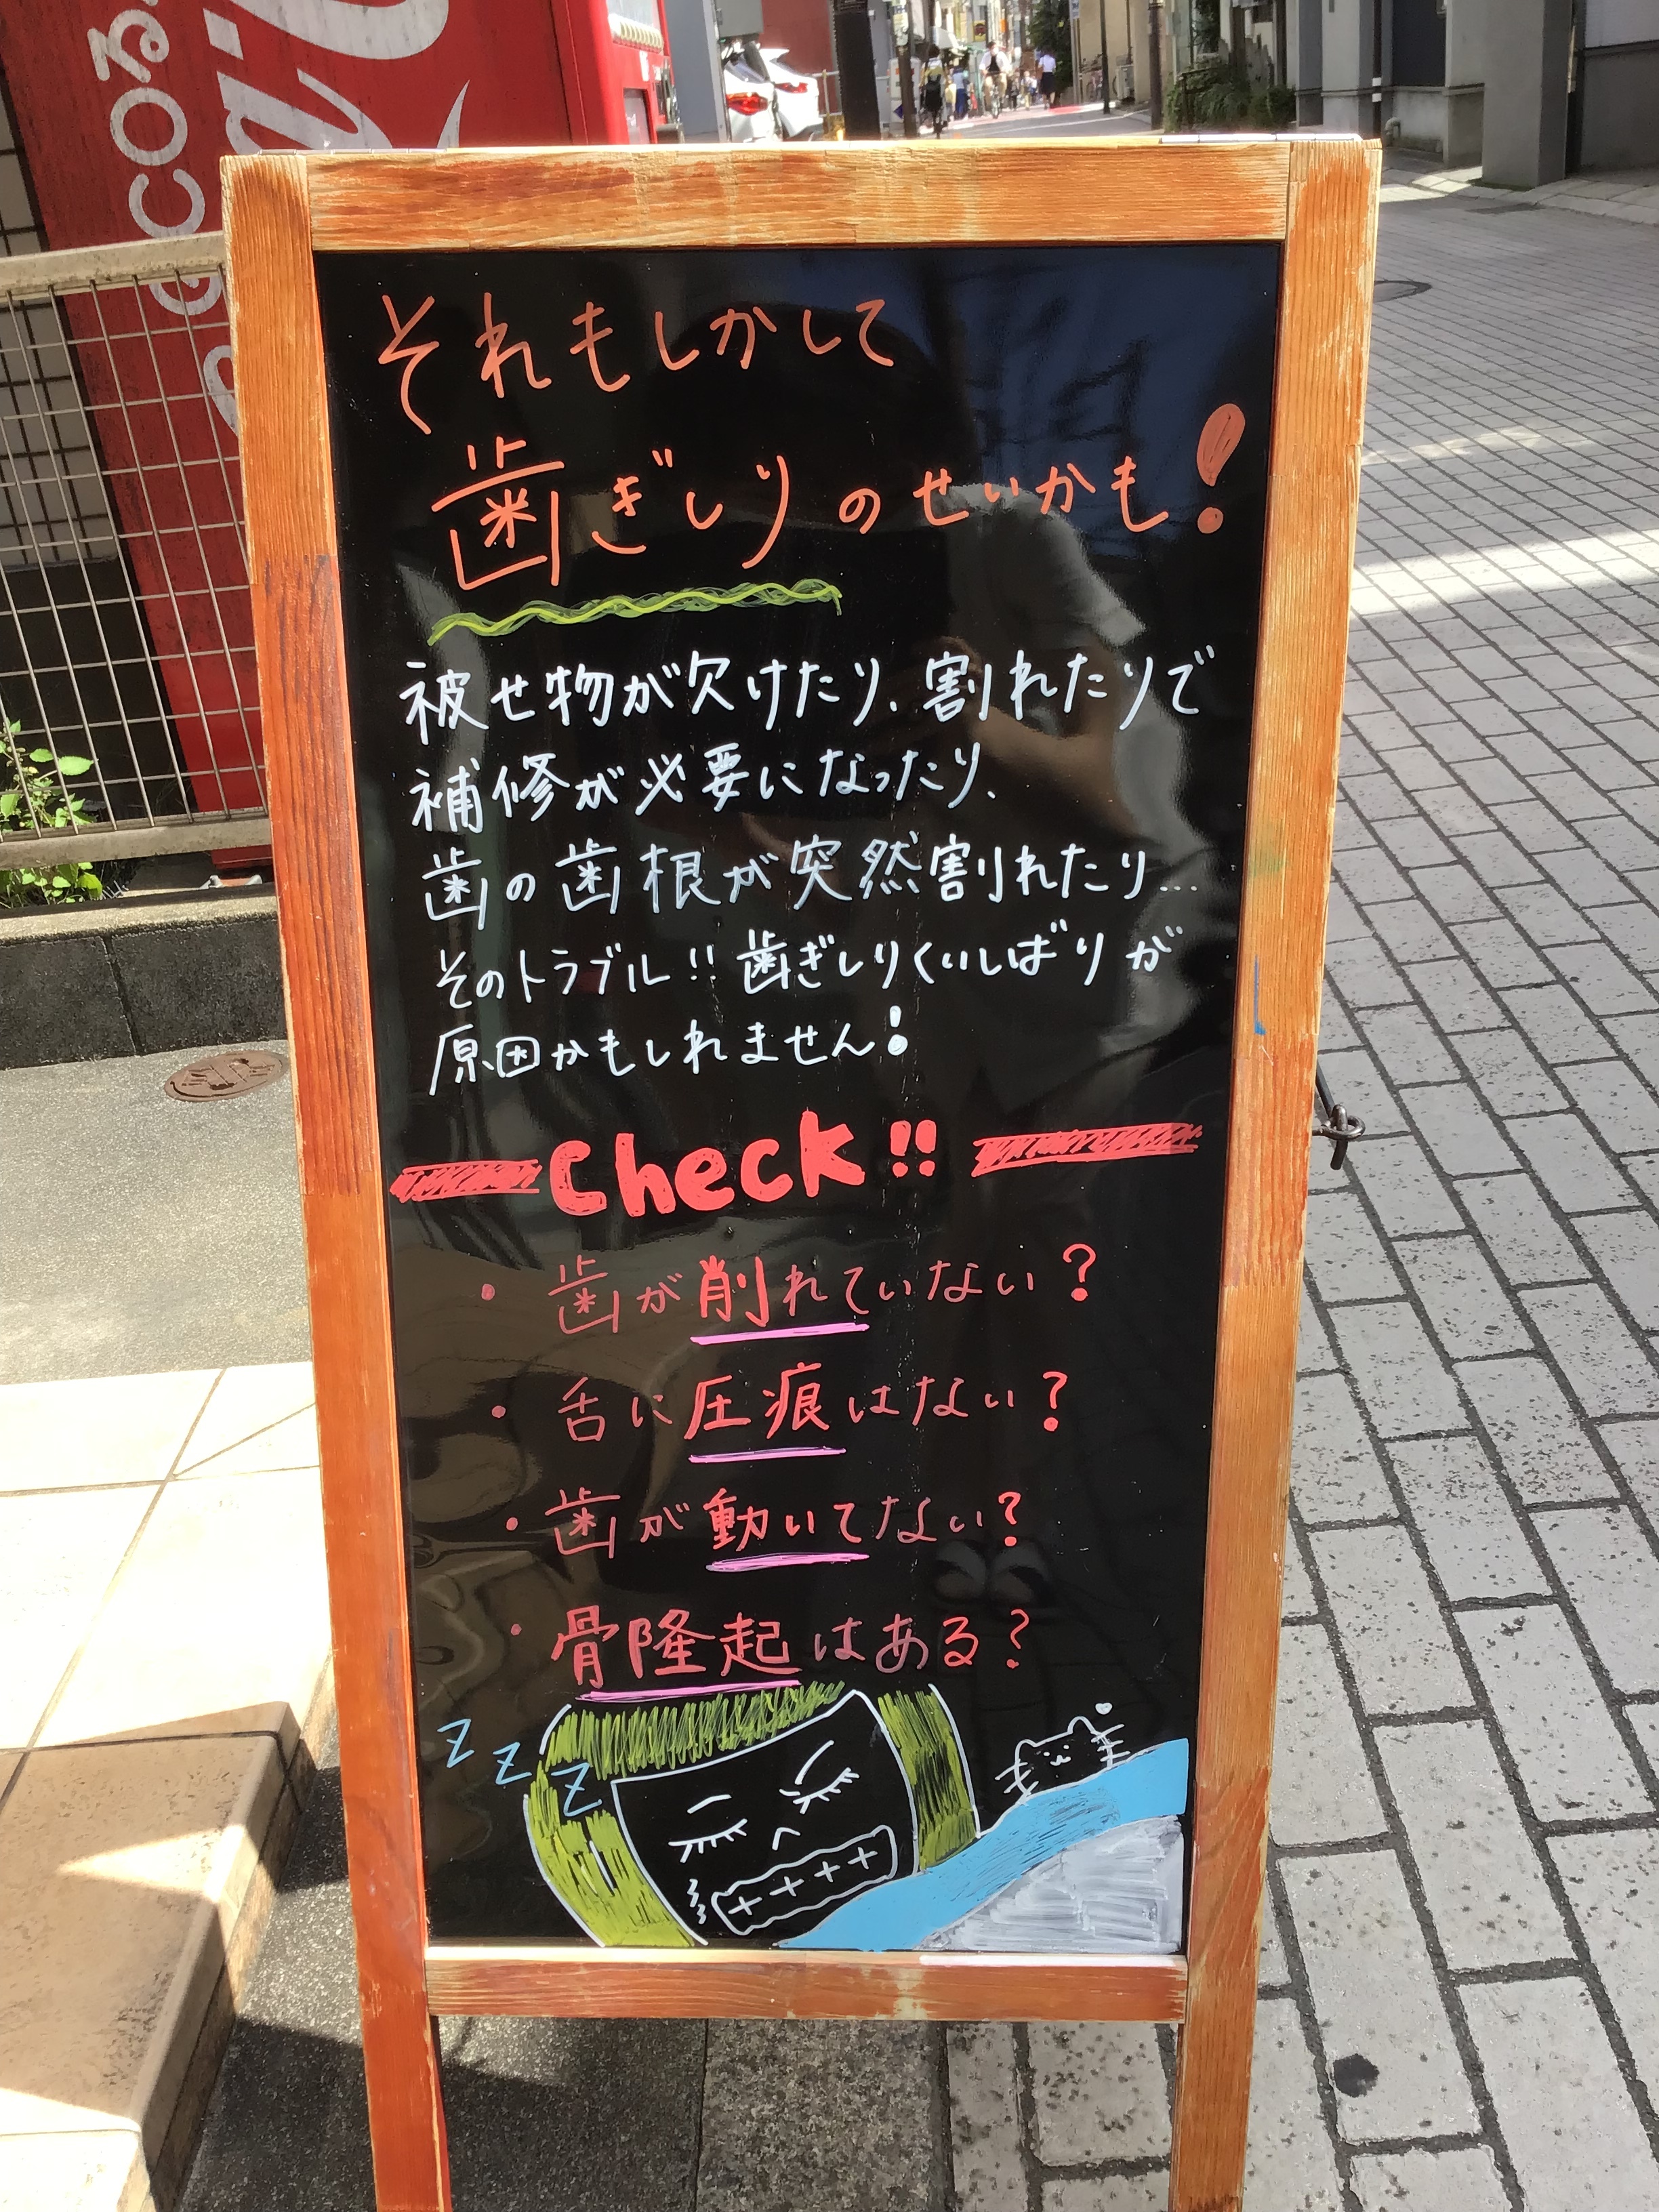 それもしかして
歯ぎしりのせいかも!
被せ物が欠けたり、割れたりで
補修が必要になったり、
歯の歯根が突然割れたり…
そのトラブル!!歯ぎしりくいしばりが
原因かもしれません!
Check!!
・歯が削れていない?
・舌に圧痕はない?
・歯が動いてない?
・骨隆起はある?
z z z